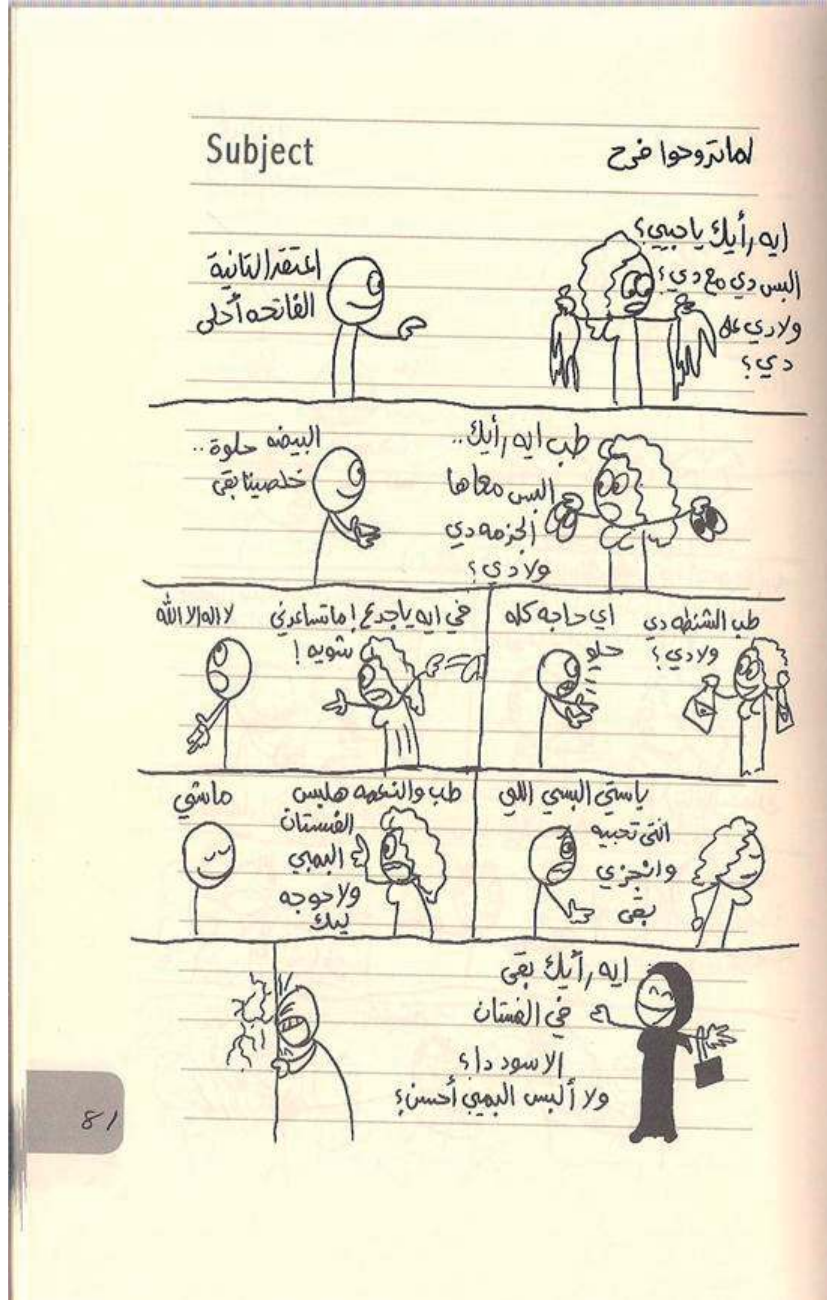 Subject
لماتروحوا فرح
ايه رأيك يا حبيبي؟
البس دي مع دي؟
ولا دي على
دي؟
اعتقد التانية
الفاتحه أحلى
طب ايه رأيك..
البس معاها
الجزمه دي
ولا دي؟
البيضه حلوة..
خلصينا بقى
طب الشنطه دي
ولا دي؟
اي حاجه كله
حلو
في ايه يا جدع! ماتساعدني
شويه!
لا اله الا الله
ياستي البسي اللي
انتى تحبيه
وانجزي
بقى
طب والنعمه هلبس
الفستان
البمبي
ولا حوجه
ليك
ماشي
ايه رأيك بقى
في الفستان
الاسود دا؟
ولا ألبس البمبي أحسن؟
81